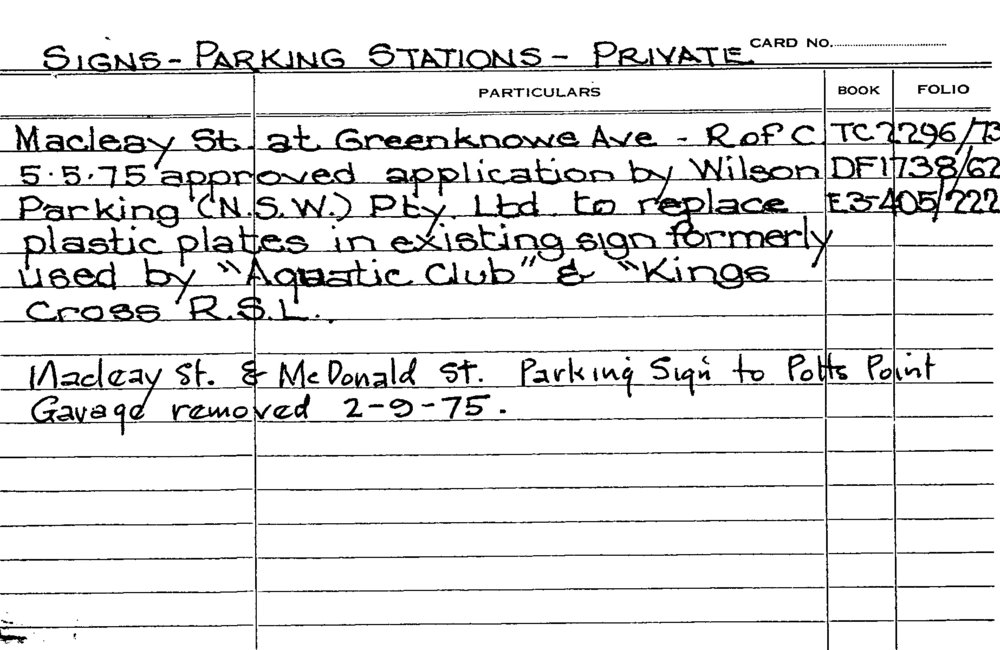 SIGNS - PARKING STATIONS - PRIVATE CARD NO.
PARTICULARS BOOK FOLIO
Macleay St. at Greenknowe Ave - R of C TC 2296/73
5.5.75 approved application by Wilson DF1738/62
Parking (N.S.W.) Pty. Ltd. to replace E3-405/222
plastic plates in existing sign formerly
used by "Aquatic Club" & "Kings
Cross R.S.L.
Macleay St. & McDonald St. Parking Sign to Potts Point
Garage removed 2-9-75.